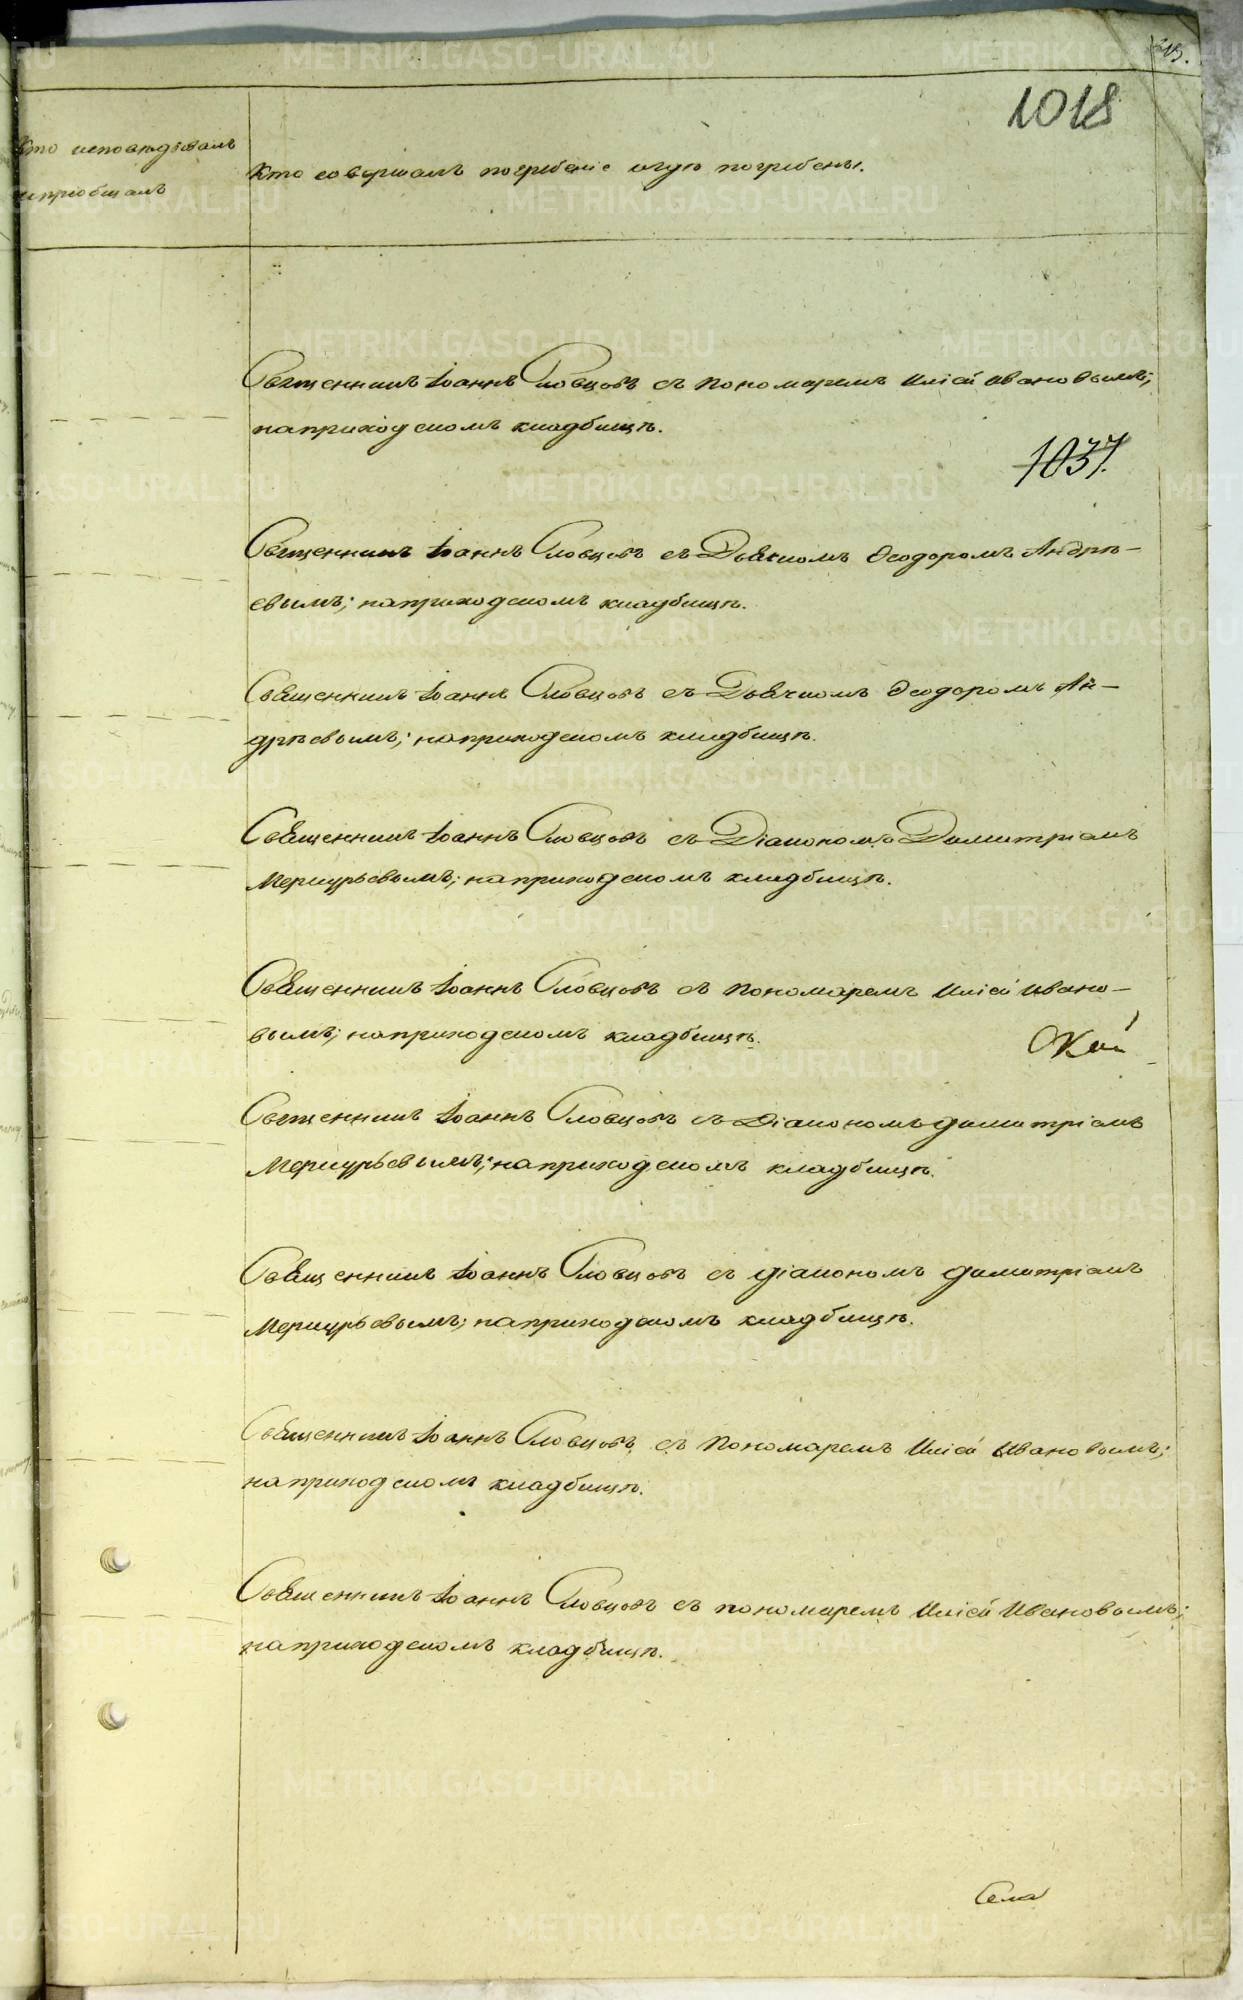 1018
Кто исповѣдывалъ
и приобщалъ
Кто совершалъ погребеніе и гдѣ погребены.
Священникъ Іоаннъ Словцовъ съ пономаремъ Иліей Ивановымъ;
на приходскомъ кладбищѣ.
1037.
Священникъ Іоаннъ Словцовъ съ Дьячкомъ Ѳеодоромъ Андрѣ-
евымъ; на приходскомъ кладбищѣ.
Священникъ Іоаннъ Словцовъ съ Дьячкомъ Ѳеодоромъ Ан-
дрѣевымъ; на приходскомъ кладбищѣ.
Священникъ Іоаннъ Словцовъ съ Діакономъ Димитріемъ
Меркурьевымъ; на приходскомъ кладбищѣ.
Священникъ Іоаннъ Словцовъ съ пономаремъ Иліей Ивано-
вымъ; на приходскомъ кладбищѣ.
Священникъ Іоаннъ Словцовъ съ Діакономъ Димитріемъ
Меркурьевымъ; на приходскомъ кладбищѣ.
Священникъ Іоаннъ Словцовъ съ діакономъ Димитріемъ
Меркурьевымъ; на приходскомъ кладбищѣ.
Священникъ Іоаннъ Словцовъ съ пономаремъ Иліей Ивановымъ;
на приходскомъ кладбищѣ.
Священникъ Іоаннъ Словцовъ съ пономаремъ Иліей Ивановымъ;
на приходскомъ кладбищѣ.
Села
METRIKI.GASO-URAL.RU